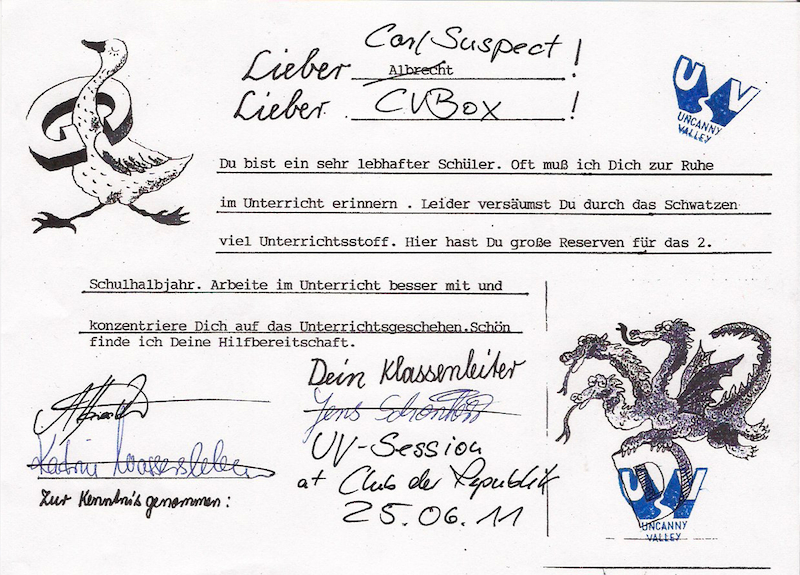 Carl Suspect
Lieber Albrecht !
Lieber CVBox !
UV
UNCANNY
VALLEY
Du bist ein sehr lebhafter Schüler. Oft muß ich Dich zur Ruhe
im Unterricht erinnern . Leider versäumst Du durch das Schwatzen
viel Unterrichtsstoff. Hier hast Du große Reserven für das 2.
Schulhalbjahr. Arbeite im Unterricht besser mit und
konzentriere Dich auf das Unterrichtsgeschehen.Schön
finde ich Deine Hilfbereitschaft.
Dein Klassenleiter
Jens
UV-Session
at Club der Republik
25.06.11
Katrin
Zur Kenntnis genommen:
D
UV
UNCANNY
VALLEY